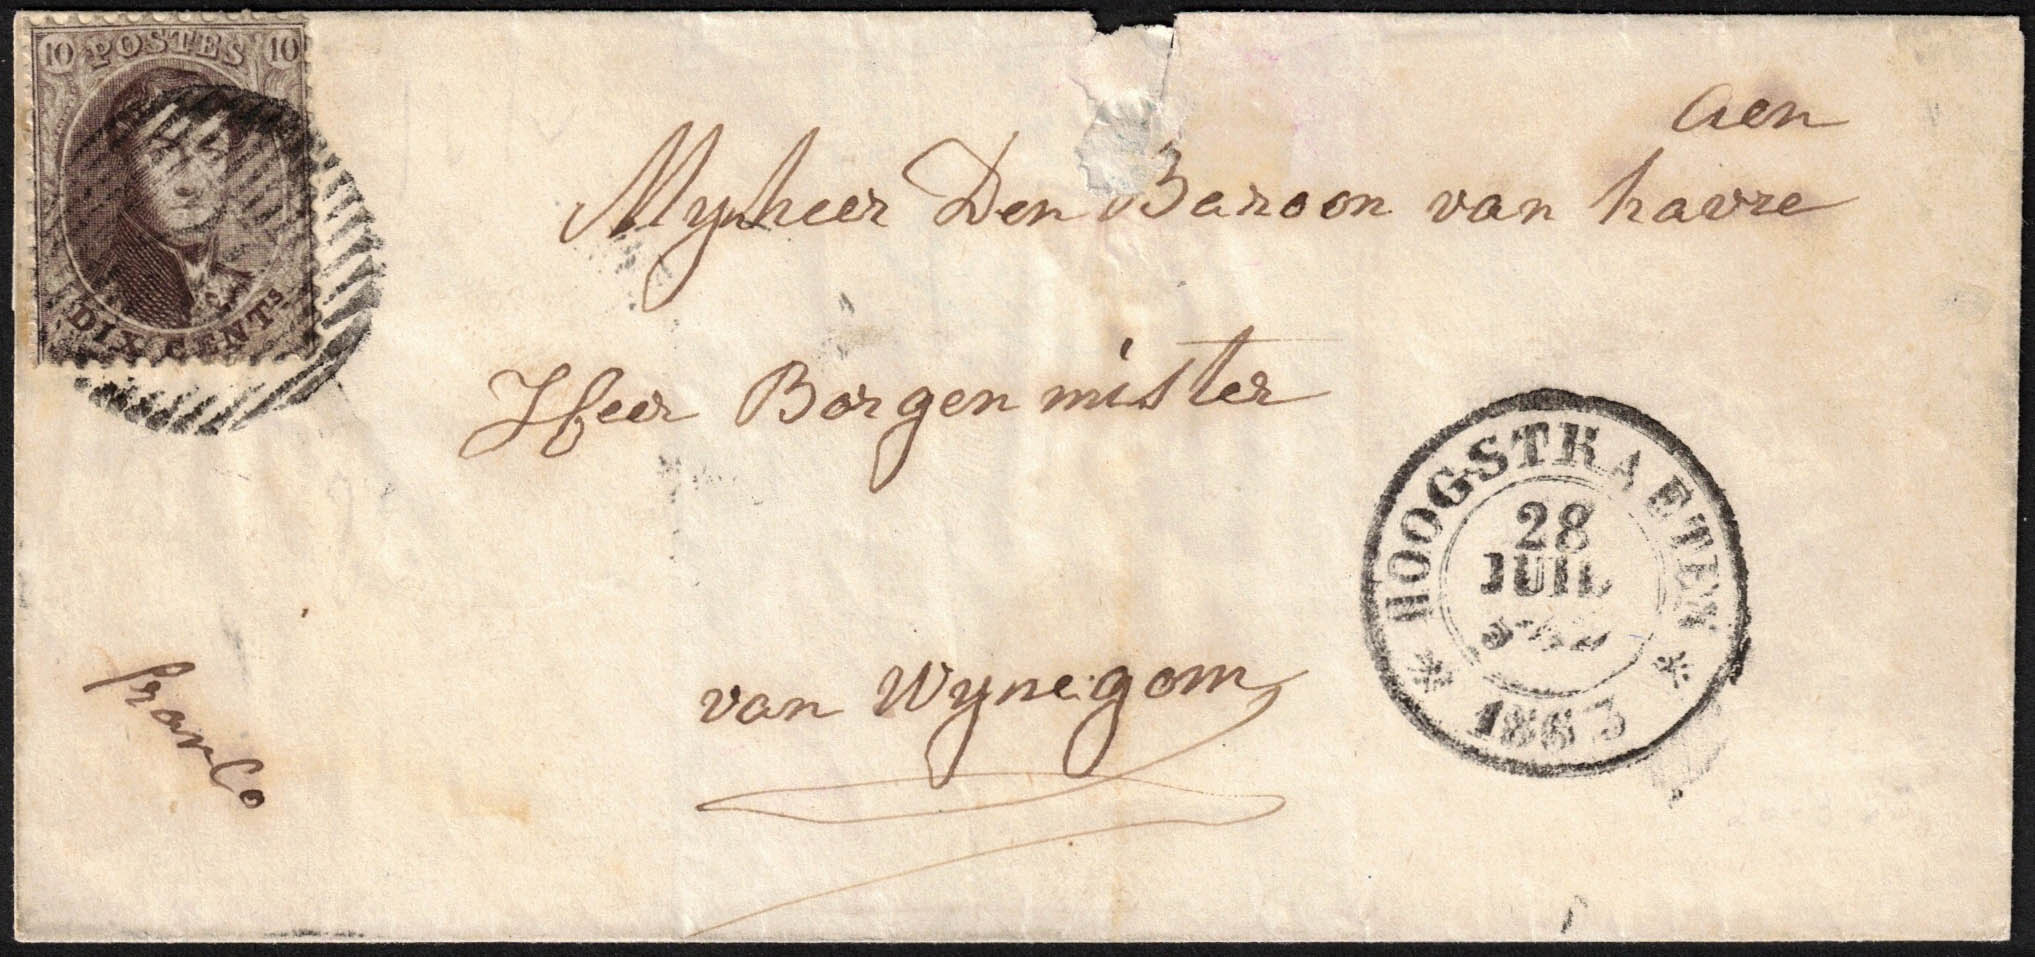 10 POSTES 10
DIX CENTS
aen
Mynheer Den Baroon van havre
Heer Borgenmister
van Wynegom
franco
HOOGSTRAETEN
28
JUIL
1863